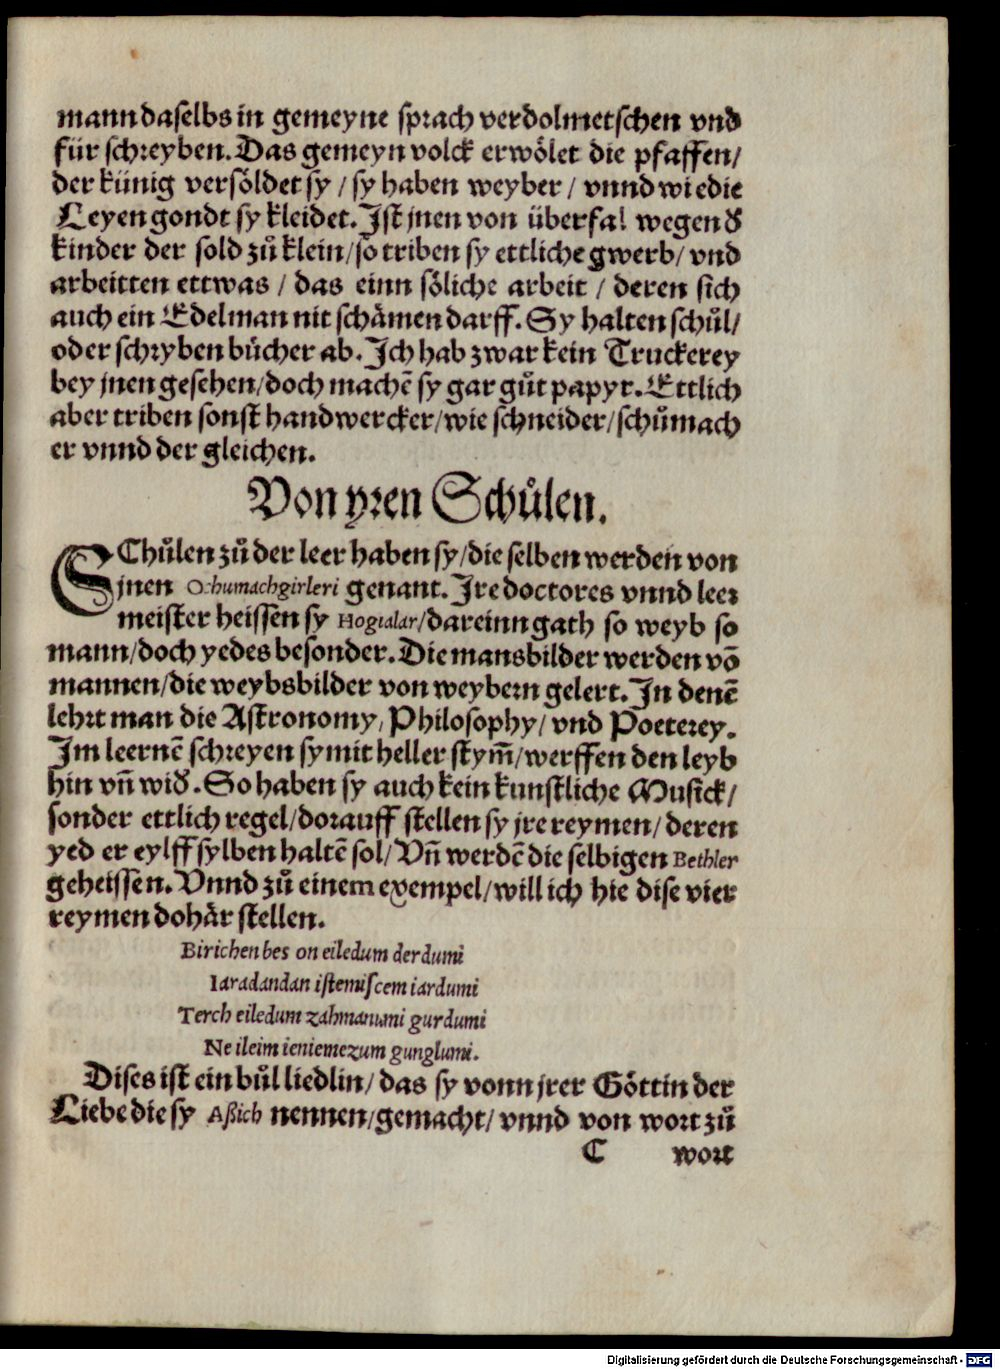 mann daselbs in gemeyne sprach verdolmetschen vnd
für schreyben. Das gemeyn volck erwölet die pfaffen/
der künig versöldet sy / sy haben weyber / vnnd wie die
Leyen gondt sy kleidet. Ist jnen von überfal wegen ð
kinder der sold zů klein/ so triben sy ettliche gwerb/ vnd
arbeitten ettwas / das einn söliche arbeit / deren sich
auch ein Edelman nit schämen darff. Sy halten schůl/
oder schryben bücher ab. Ich hab zwar kein Truckerey
bey jnen gesehen/ doch machē sy gar gůt papyr. Ettlich
aber triben sonst handwercker/ wie schneider/ schůmach
er vnnd der gleichen.
Von yren Schůlen.
SChůlen zů der leer haben sy/ die selben werden von
jnen Ochumachgirleri genant. Ire doctores vnnd leer
meister heissen sy Hogialar/ dareinn gath so weyb so
mann/ doch yedes besonder. Die mansbilder werden vō
mannen/ die weybsbilder von weybern gelert. In denē
lehrt man die Astronomy, Philosophy/ vnd Poeterey.
Im leernē schreyen sy mit heller stym̄/ werffen den leyb
hin vn̄ wið. So haben sy auch kein kunstliche Musick/
sonder ettlich regel/ dorauff stellen sy jre reymen/ deren
yed er eylff sylben haltē sol/ Vn̄ werdē die selbigen Bethler
geheissen. Vnnd zů einem exempel/ will ich hie dise vier
reymen dohär stellen.
Birichen bes on eiledum derdumi
Iaradandan istemiscem iardumi
Terch eiledum zahmanumi gurdumi
Ne ileim ieniemezum gunglumi.
Dises ist ein bůl liedlin/ das sy vonn jrer Göttin der
Liebe die sy Aßich nennen/ gemacht/ vnnd von wort zů
C wort
Digitalisierung gefördert durch die Deutsche Forschungsgemeinschaft - DFG